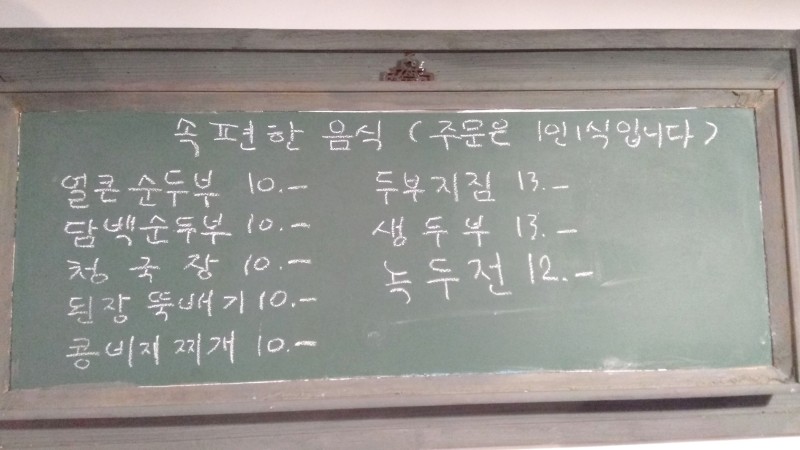 속 편한 음식 (주문은 1인1식입니다)
얼큰순두부 10.-
담백순두부 10.-
청국장 10.-
된장 뚝배기 10.-
콩비지 찌개 10.-
두부지짐 13.-
생두부 13.-
녹두전 12.-